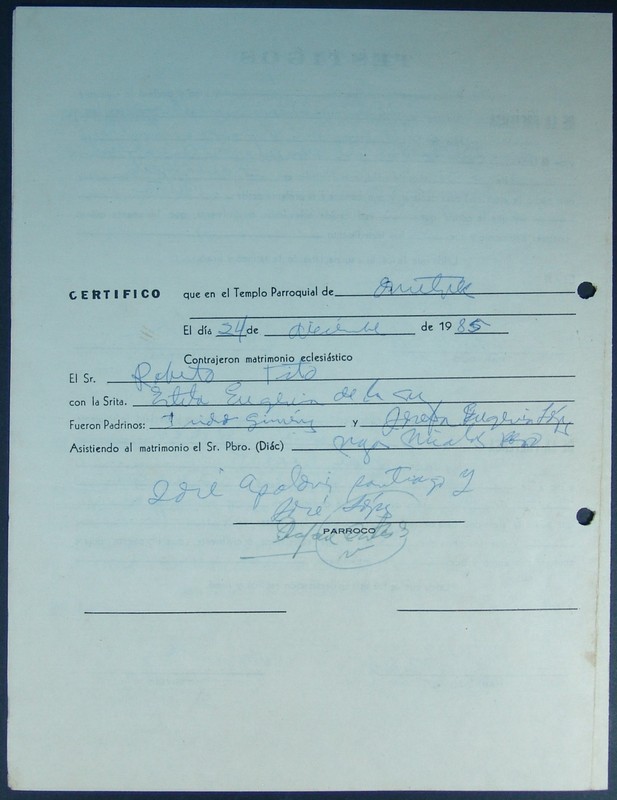 CERTIFICO que en el Templo Parroquial de
El día 24 de diciembre de 1985
Contrajeron matrimonio eclesiástico
El Sr. Roberto Tito
con la Srita. Estela Eugenia de la
Fueron Padrinos: y Josefa Eugenia López
Asistiendo al matrimonio el Sr. Pbro. (Diác)
José Santiago y
José López
PARROCO